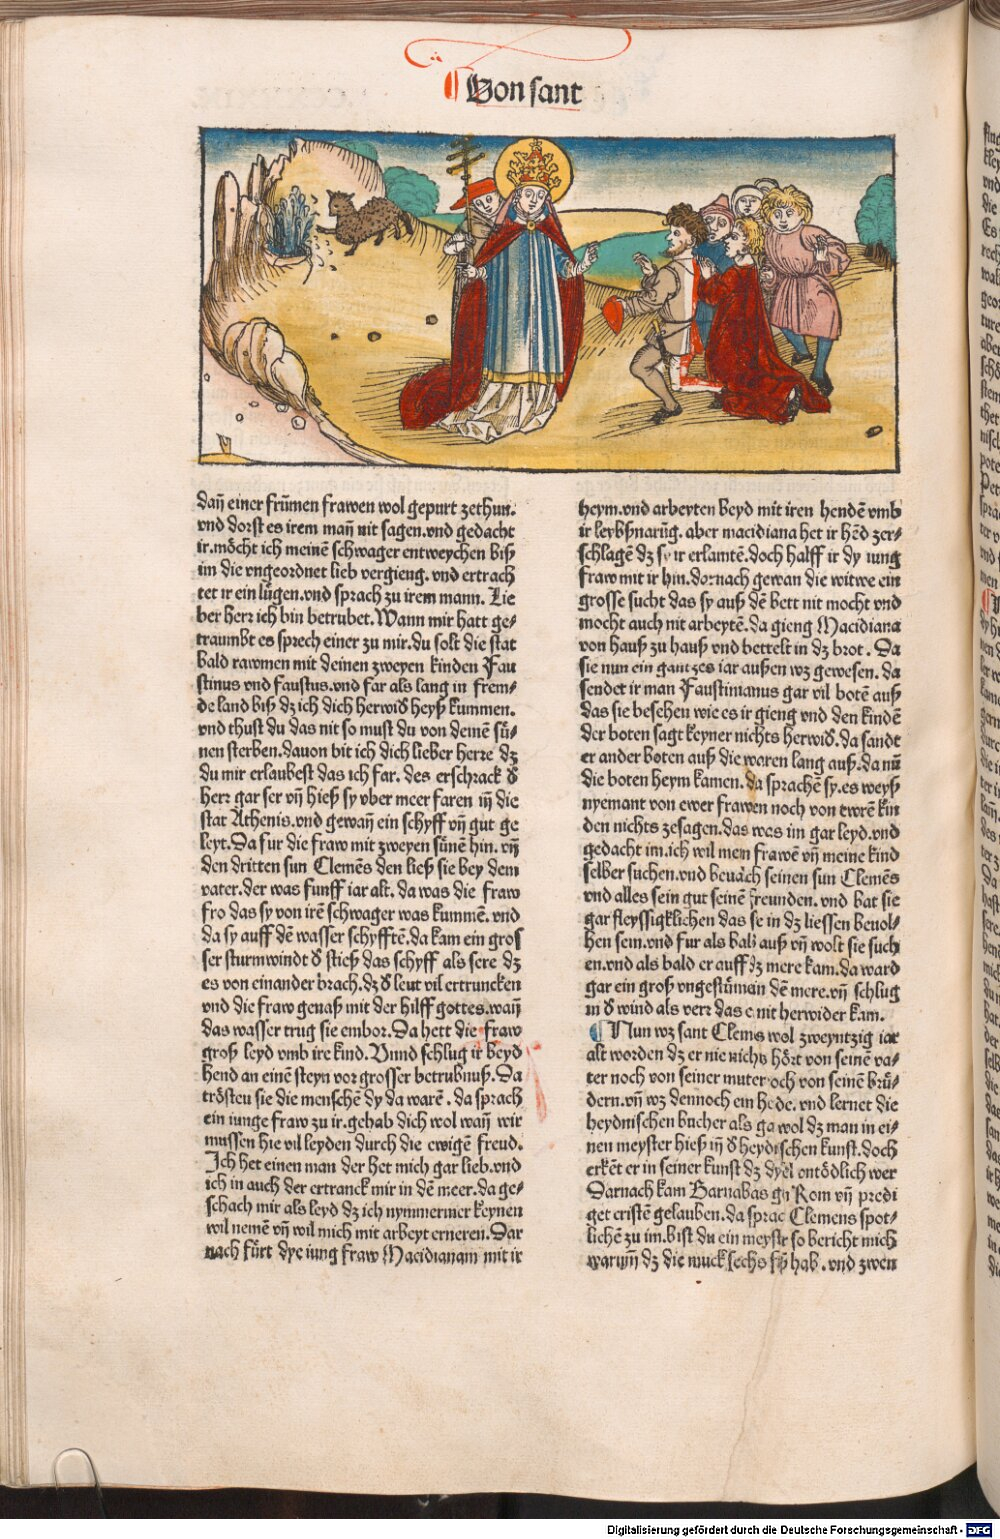 ¶ Von sant
dañ einer frümen frawen wol gepurt zethun.
vnd dorst es irem mañ nit sagen. vnd gedacht
ir. möcht ich meinē schwager entweychen biß
im die vngeordnet lieb vergieng. vnd ertrach
tet ir ein lügen. vnd sprach zu irem mann. Lie
ber herr ich bin betrubet. Wann mir hatt ge⸗
traumbt es sprech einer zu mir. du solt die stat
bald rawmen mit deinen zweyen kinden Fau
stinus vnd faustus. vnd far als lang in frem⸗
de land biß dz ich dich herwid heyß kummen.
vnd thust du das nit so must du von deinē sü⸗
nen sterben. dauon bit ich dich lieber herre dz
du mir erlaubest das ich far. des erschrack d
herr gar ser vñ hieß sy vber meer faren iñ die
stat Athenis. vnd gewañ ein schyff vñ gut ge
leyt. Da fur die fraw mit zweyen sünē hin. vñ
den dritten sun Clemēs den ließ sie bey dem
vater. der was funff iar alt. da was die fraw
fro das sy von irē schwager was kummē. vnd
da sy auff dē wasser schyfftē. da kam ein gros
ser sturmwindt d stieß das schyff als sere dz
es von einander brach. dz d leut vil ertruncken
vnd die fraw genaß mit der hilff gottes. wañ
das wasser trug sie embor. Da hett die fraw
groß leyd vmb ire kind. Vnnd schlug ir beyd
hend an einē steyn vor grosser betrubnuß. Da
trösten sie die menschē dy da warē. da sprach
ein iunge fraw zu ir. gehab dich wol wañ wir
mussen hie vil leyden durch die ewigē freud.
Ich het einen man der het mich gar lieb. vnd
ich in auch der ertranck mir in dē meer. da ge⸗
schach mir als leyd dz ich nymmermer keynen
wil nemē vñ wil mich mit arbeyt erneren. Dar
nach fürt dye iung fraw Macidianam mit ir
heym. vnd arbeyten beyd mit iren hendē vmb
ir leybßnarüg. aber macidiana het ir hēd zer⸗
schlagē dz sy ir erlamtē. doch halff ir dy iung
fraw mit ir hin. dornach gewan die witwe ein
grosse sucht das sy auß dē bett nit mocht vnd
mocht auch nit arbeytē. da gieng Macidiana
von hauß zu hauß vnd bettelt in dz brot. Da
sie nun ein gantzes iar außen wz gewesen. da
sendet ir man Faustinianus gar vil botē auß
das sie besehen wie es ir gieng vnd den kindē
der boten sagt keyner nichts herwid. da sandt
er ander boten auß die waren lang auß. da nū
die boten heym kamen. da sprachē sy. es weyß
nyemant von ewer frawen noch von ewrē kin
den nichts zesagen. das was im gar leyd. vnd
gedacht im. ich wil mein frawē vñ meine kind
selber suchen. vnd beualch seinen sun Clemēs
vnd alles sein gut seinē freunden. vnd bat sie
gar fleyssigklichen das se in dz liessen beuol⸗
hen sein. vnd fur als bald auß vñ wolt sie such
en. vnd als bald er auff dz mere kam. da ward
gar ein groß vngestüman dē mere. vñ schlug
in d wind als verr das e nit herwider kam.
¶ Nun wz sant Clems wol zweyntzig iar
alt worden dz er nie nichs hört von seinē va⸗
ter noch von seiner muter och von seinē brü⸗
dern. vñ wz dennoch ein hede. vnd lernet die
heydnischen bucher als ga wol dz man in ei⸗
nen meyster hieß iñ d heydischen kunst. doch
erkēt er in seiner kunst dz dyēl ontödlich wer
Darnach kam Barnabas gu Rom vñ predi
get cristē gelauben. da sprac Clemens spot⸗
lichē zu im. bist du ein meystr so bericht mich
warum dz die muck sechs fuß hab. vnd zwen
Digitalisierung gefördert durch die Deutsche Forschungsgemeinschaft - DFG